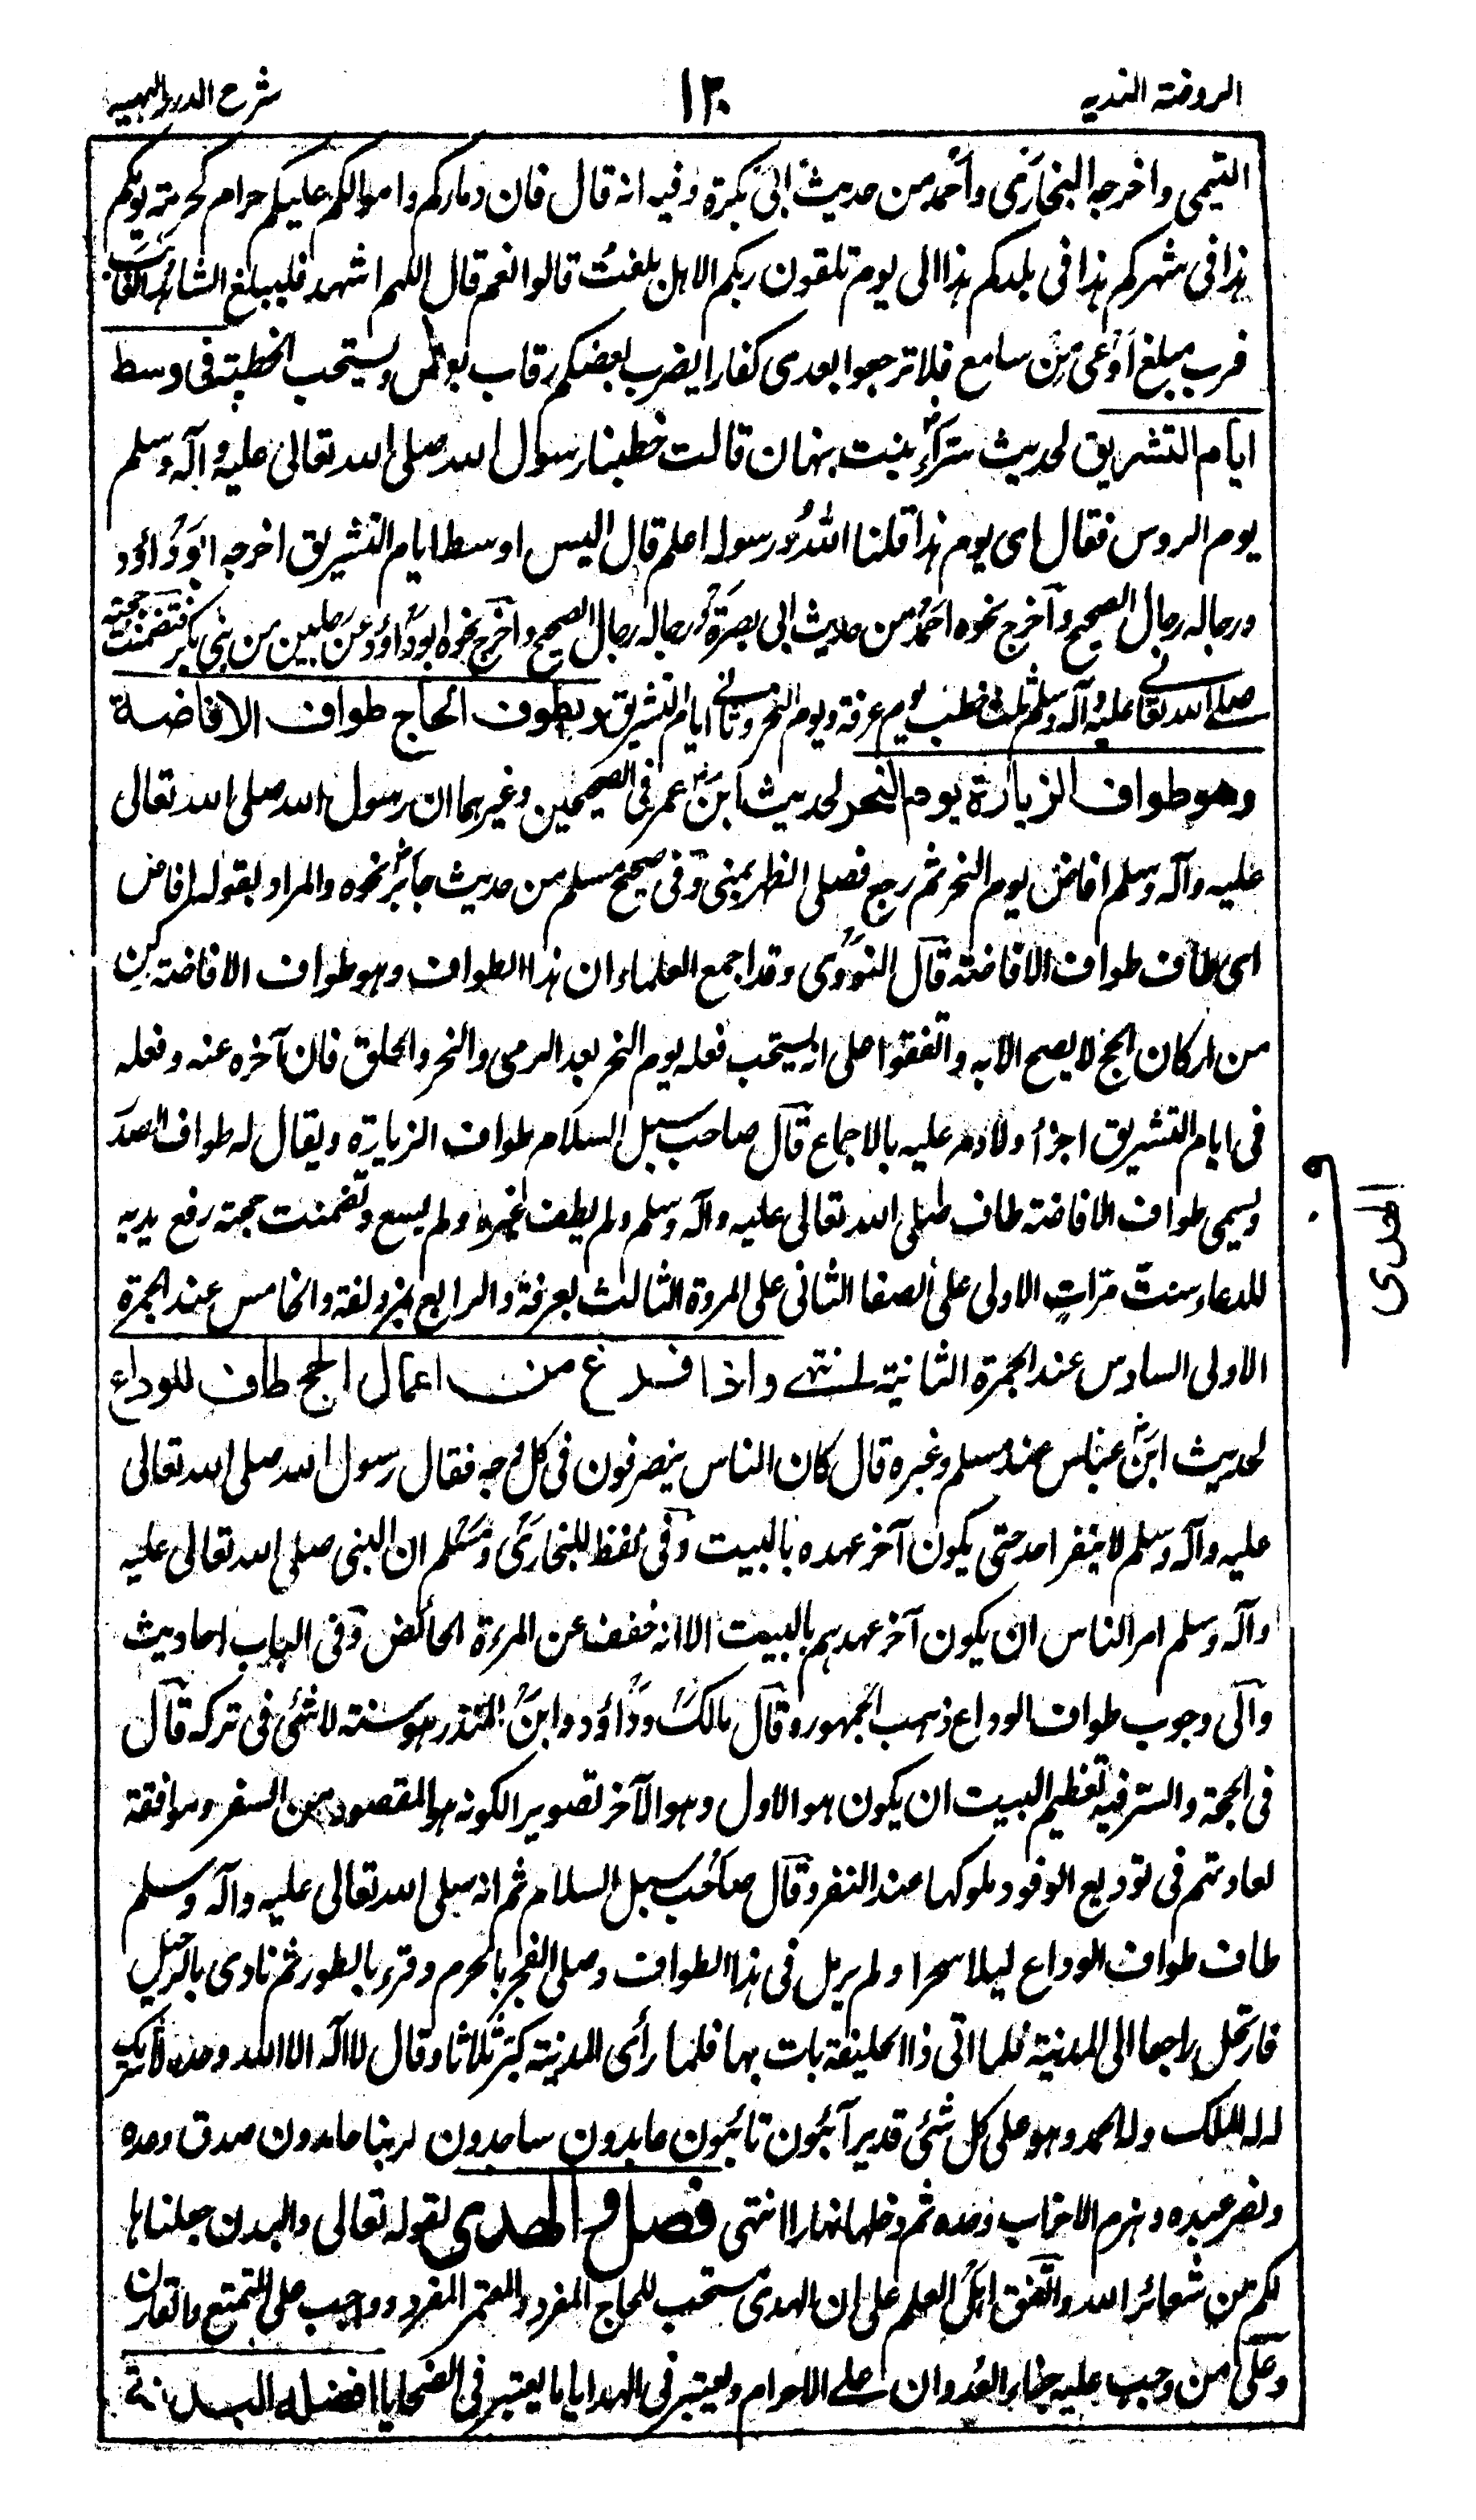 الروضة الندية
١٣٠
شرح الدرر البهية
التيمى واخرجه البخارى وأحمد من حديث ابى بكرة وفيه انه قال فان دماءكم واموالكم عليكم حرام كحرمة يومكم
هذا فى شهركم هذا فى بلدكم هذا الى يوم تلقون ربكم الا هل بلغت قالوا نعم قال اللهم اشهد فليبلغ الشاهد الغائب
فرب مبلغ اوعى من سامع فلا ترجعوا بعدى كفارا يضرب بعضكم رقاب بعض ويستحب الخطبة فى وسط
ايام التشريق لحديث سراء بنت نبهان قالت خطبنا رسول الله صلى الله تعالى عليه وآله وسلم
يوم الروس فقال اى يوم هذا قلنا الله ورسوله اعلم قال اليس اوسط ايام التشريق اخرجه ابو داؤد
ورجاله رجال الصحيح وآخرج نحوه احمد من حديث ابى بصرة ورجاله رجال الصحيح وآخرج نحوه ابو داؤد عن رجلين من بنى بكر فتضمنت حجته
صلى الله تعالى عليه وآله وسلم ثلث خطب يوم عرفة ويوم النحر وثانى ايام التشريق ويطوف الحاج طواف الافاضة
وهو طواف الزيارة يوم النحر لحديث ابن عمر فى الصحيحين وغيرهما ان رسول الله صلى الله تعالى
عليه وآله وسلم افاض يوم النحر ثم رجع فصلى الظهر بمنى وفى صحيح مسلم من حديث جابر نحوه والمراد بقوله افاض
اى طاف طواف الافاضة قال النووى وقد اجمع العلماء ان هذا الطواف وهو طواف الافاضة ركن
من اركان الحج لا يصح الا به واتفقوا على انه يستحب فعله يوم النحر بعد الرمى والنحر والحلق فان آخره عنه وفعله
فى ايام التشريق اجزأ ولا دم عليه بالاجماع قال صاحب سبل السلام طواف الزيارة ويقال له طواف الصدر
ويسمى طواف الافاضة طاف صلى الله تعالى عليه وآله وسلم ولم يطف غيره ولم يسع وتضمنت حجته رفع يديه
للدعاء ست مرات الاولى على الصفا الثانى على المروة الثالث بعرفة والرابع بمزدلفة والخامس عند الجمرة
الاولى السادس عند الجمرة الثانية انتهى واذا فرغ من اعمال الحج طاف للوداع
لحديث ابن عباس عند مسلم وغيره قال كان الناس ينصرفون فى كل وجه فقال رسول الله صلى الله تعالى
عليه وآله وسلم لا ينفر احد حتى يكون آخر عهده بالبيت وفى لفظ للبخارى ومسلم ان النبى صلى الله تعالى عليه
وآله وسلم امر الناس ان يكون آخر عهدهم بالبيت الا انه خفف عن المرءة الحائض وفى الباب احاديث
وآلى وجوب طواف الوداع ذهب الجمهور وقال مالك وداؤد وابن المنذر هو سنته لا شئ فى تركه قال
فى الحجة والسر فيه تعظيم البيت ان يكون هو الاول وهو الآخر تصويرا لكونه هو المقصود من السفر وموافقة
لعادتهم فى توديع الوفود ملوكها عند النفر وقال صاحب سبل السلام ثم انه صلى الله تعالى عليه وآله وسلم
طاف طواف الوداع ليلا سحرا ولم يرمل فى هذا الطواف وصلى الفجر بالحرم وقرء بالطور ثم نادى بالرحيل
فارتحل راجعا الى المدينة فلما اتى ذا الحليفة بات بها فلما رأى المدينة كبر ثلاثا وقال لا اله الا الله وحده لا شريك
له له الملك وله الحمد وهو على كل شئ قدير آئبون تائبون عابدون ساجدون لربنا حامدون صدق وعده
ونصر عبده وهزم الاحزاب وحده ثم دخلها نهارا انتهى فصل و الهدى لقوله تعالى والبدن جعلناها
لكم من شعائر الله واتفق اهل العلم على ان الهدى مستحب للحاج المفرد والمعتمر المفرد وواجب على المتمتع والقارن
وعلى من وجب عليه جزاء العدوان على الاحرام ويعتبر فى الهدايا ما يعتبر فى الضحايا افضله البدنة
الهدى